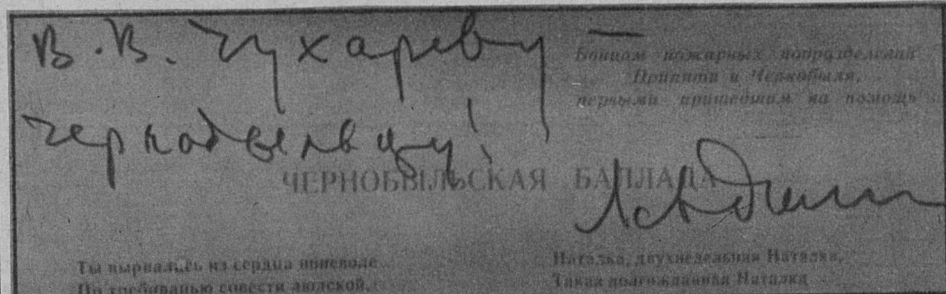 В.В. Чухареву —
Бойцам пожарных подразделений
Припяти и Чернобыля,
первыми пришедшим на помощь
чернобыльцу!
ЧЕРНОБЫЛЬСКАЯ БАЛЛАДА
Ты вырвалась из сердца поневоле
По требованью совести людской,
Наталка, двухнедельная Наталка,
Такая долгожданная Наталка